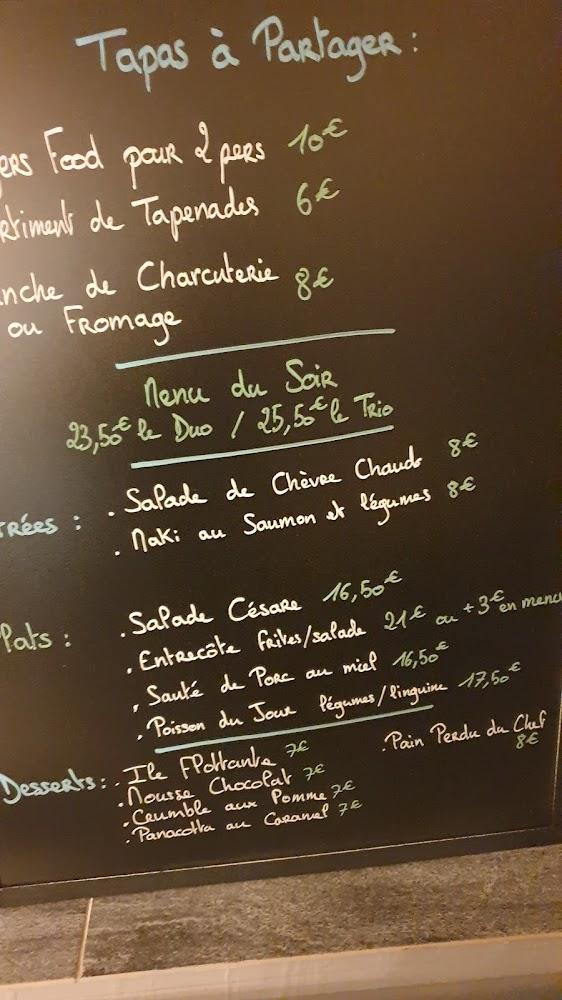 Tapas à Partager :
ers Food pour 2 pers 10€
rtiment de Tapenades 6€
nche de Charcuterie 8€
ou Fromage
Menu du Soir
23,50€ le Duo / 25,50€ le Trio
trées :
. Salade de Chèvre Chaud 8€
. Maki au Saumon et légumes 8€
Plats :
. Salade César 16,50€
. Entrecôte frites/salade 21€ ou +3€ en menu
. Sauté de Porc au miel 16,50€
. Poisson du Jour légumes/linguine 17,50€
Desserts :
. Ile Flottante 7€
. Mousse Chocolat 7€
. Crumble aux Pomme 7€
. Panacotta au Caramel 7€
. Pain Perdu du Chef 8€